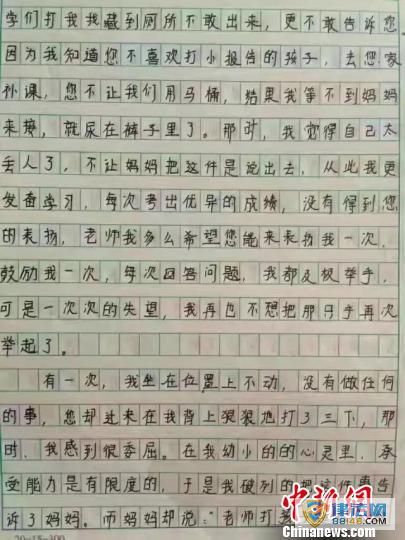 学们打我我藏到厕所不敢出来，更不敢告诉您。
因为我知道您不喜欢打小报告的孩子，去您家
补课，您不让我们用马桶，结果我等不到妈妈
来接，就尿在裤子里了。那时，我觉得自己太
丢人了，不让妈妈把这件是说出去，从此我更
发奋学习，每次考出优异的成绩，没有得到您
的表扬，老师我多么希望您能来表扬我一次，
鼓励我一次，每次回答问题，我都及极举手，
可是一次次的失望，我再也不想把那只手再次
举起了。
有一次，我坐在位置上不动，没有做任何
的事，您却进来在我背上狠狠地打了三下，那
时，我感到很委屈。在我幼小的的心灵里，承
受能力是有限度的，于是我破列的把这件事告
诉了妈妈。而妈妈却说："老师打
20×15=300
中新网
Chinanews.com
律法网
88148.com